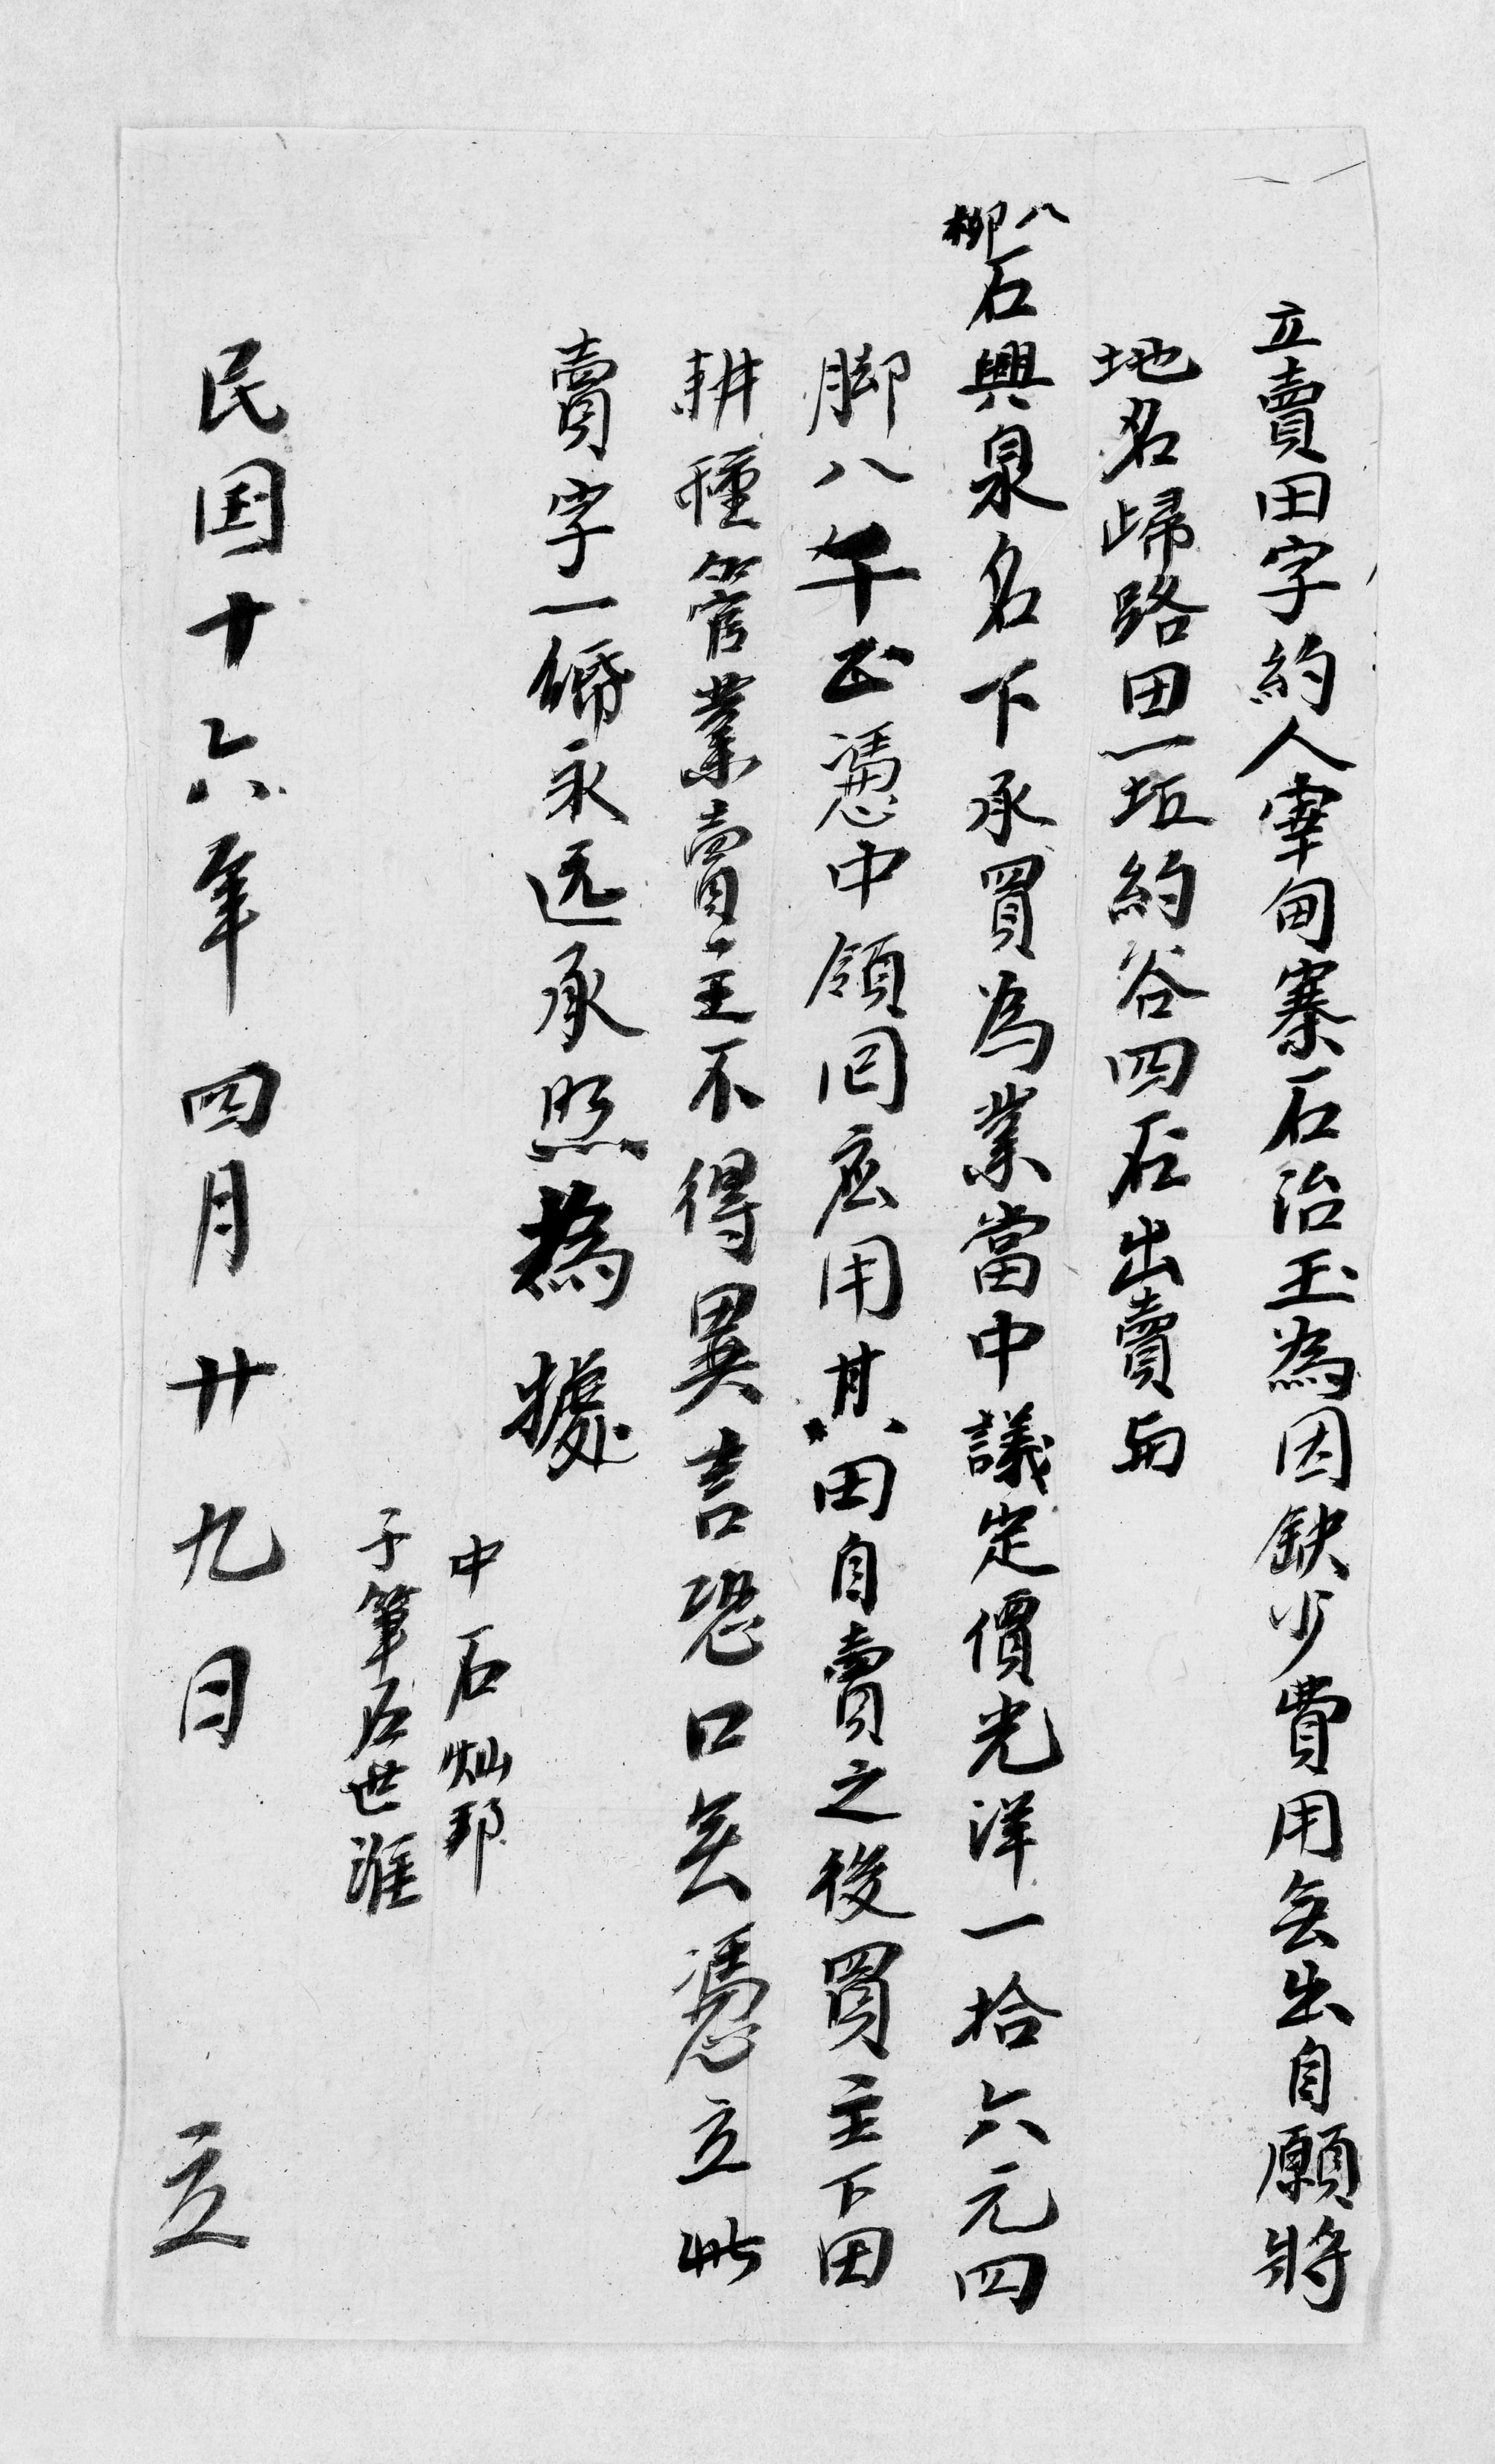 立賣田字約人宰甸寨石治玉為因缺少費用無出自願將
地名歸路田一坵約谷四石出賣与
八柳石興泉名下承買為業當中議定價光洋一拾六元四
脚八千正憑中領囘應用其田自賣之後買主下田
耕種管業賣主不得異言恐口無憑立此
賣字一帋永远承照為據
中石灿邦
子筆石世淮
民国十六年四月廿九日 立